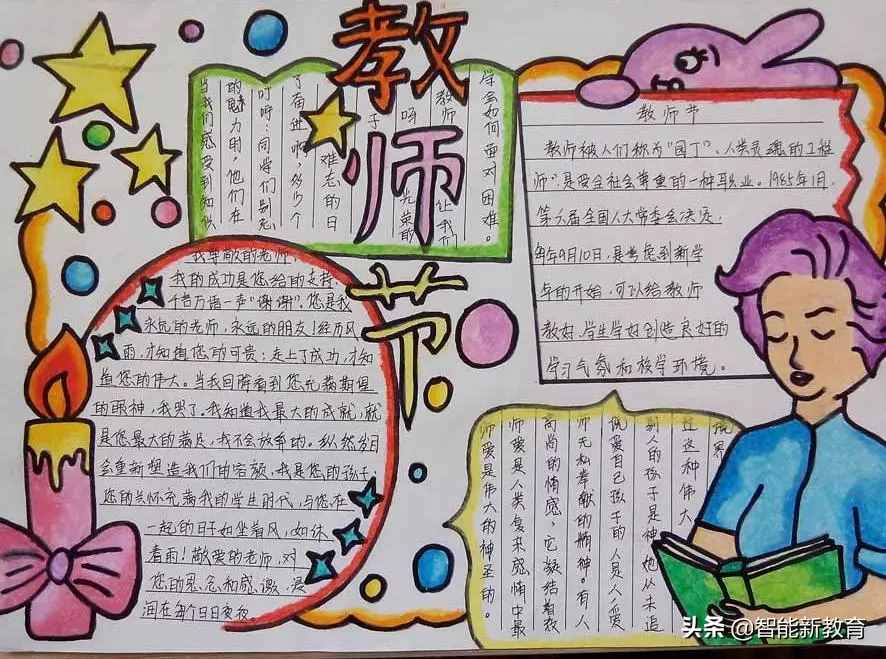 教师节
学会如何面对困难。
教师
让我们
光荣的
难忘的日
了奋进啊,多少个
叮咛:同学们别忘
的魅力时,他们在
当我们感受到知识
教师节
教师被人们称为“园丁”、人类灵魂的工程
师”,是受全社会尊重的一种职业。1985年1月,
第六届全国人大常委会决定,
每年9月10日,是考虑到新学
年的开始,可以给教师
教好、学生学好创造良好的
学习气氛和校学环境。
我尊敬的老师
我的成功是您给的支持,
千言万语一声“谢谢”。您是我
永远的老师,永远的朋友!经历风
雨,才知道您的可贵;走上了成功,才知
道您的伟大。当我回眸看到您充满期望
的眼神,我哭了。我知道我最大的成就,就
是您最大的满足,我不会放弃的。纵然岁月
会重新塑造我们的容颜,我是您的孩子;
您的关怀充满我的学生时代,与您在
一起的日子如坐着风,如沐
着雨!敬爱的老师,对
您的思念和感激,浸
润在每个日日夜夜。
这种伟大
别人的孩子是神。她从未追
说爱自己孩子的人是人,爱
师无私奉献的精神。有人
高尚的情感,它凝结着教
师爱是人类复杂感情中最
师爱是伟大的神圣的。
头条 @智能新教育